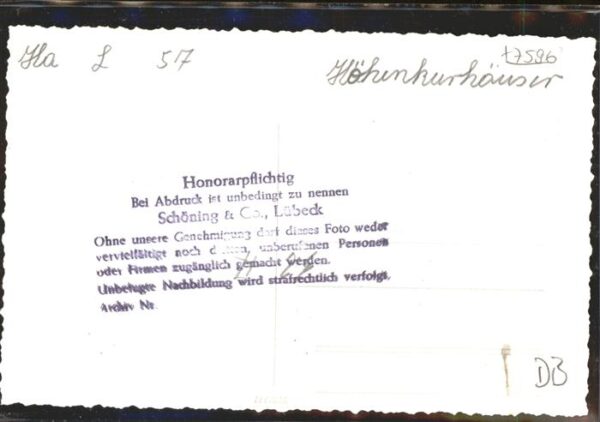 Ha L 517
+7596
Höhenkurhäuser
Honorarpflichtig
Bei Abdruck ist unbedingt zu nennen
Schöning & Co., Lübeck
Ohne unsere Genehmigung darf dieses Foto weder
vervielfältigt noch dritten, unberufenen Personen
oder Firmen zugänglich gemacht werden.
Unbefugte Nachbildung wird strafrechtlich verfolgt.
Archiv Nr.
DB